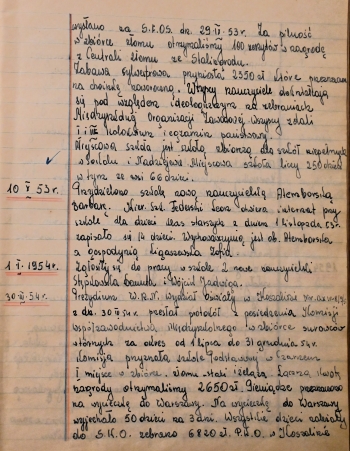 wysłano za S.F.O.S. dn. 29 53 r. Za pilność
w zbiórce złomu otrzymaliśmy 100 zeszytów w nagrodę
z Centrali złomu ze Stalinogrodu.
Zabawa sylwestrowa przyniosła 2350 zł które przeznaczono
na choinkę noworoczną. Wszyscy nauczyciele dokształcają
się pod względem ideologicznym na zebraniach
Międzyszkolnej Organizacji Zawodowej. Wszyscy zdali
i egzamin państwowy.
Miejscowa szkoła jest szkołą zbiorczą dla szkół
w i Miejscowa szkoła liczy 250 dzieci
w tym ze wsi 66 dzieci.
10 53 r. Przydzielono szkole nową nauczycielkę
Barbarę. Kier. szk. Federski otwiera internat przy
szkole dla dzieci klas starszych z dniem 1 listopada 53 r.
zapisało się 14 dzieci. Wychowawczynią jest ob.
a gospodynią Ligaszewska Zofia.
1 1954 r. Zgłosiły się do pracy w szkole 2 nowe nauczycielki
Danuta i Wójcik Jadwiga.
30 54 r. Prezydium W.R.N. Wydział Oświaty w Koszalinie
z dn. 30 54 r. przesłał protokół z posiedzenia Komisji
Współzawodnictwa Międzyszkolnego w zbiórce surowców
wtórnych za okres od 1 lipca do 31 grudnia 54 r.
Komisja przyznała szkole Podstawowej w
I miejsce w zbiórce złomu stali i żelaza. Łączną kwotę
nagrody otrzymaliśmy 2650 zł. Pieniądze przeznaczono
na wycieczkę do Warszawy. Na wycieczkę do Warszawy
wyjechało 50 dzieci na 3 dni. Wszystkie dzieci należały
do S.K.O. zebrano 6820 zł. P.K.O. w Koszalinie